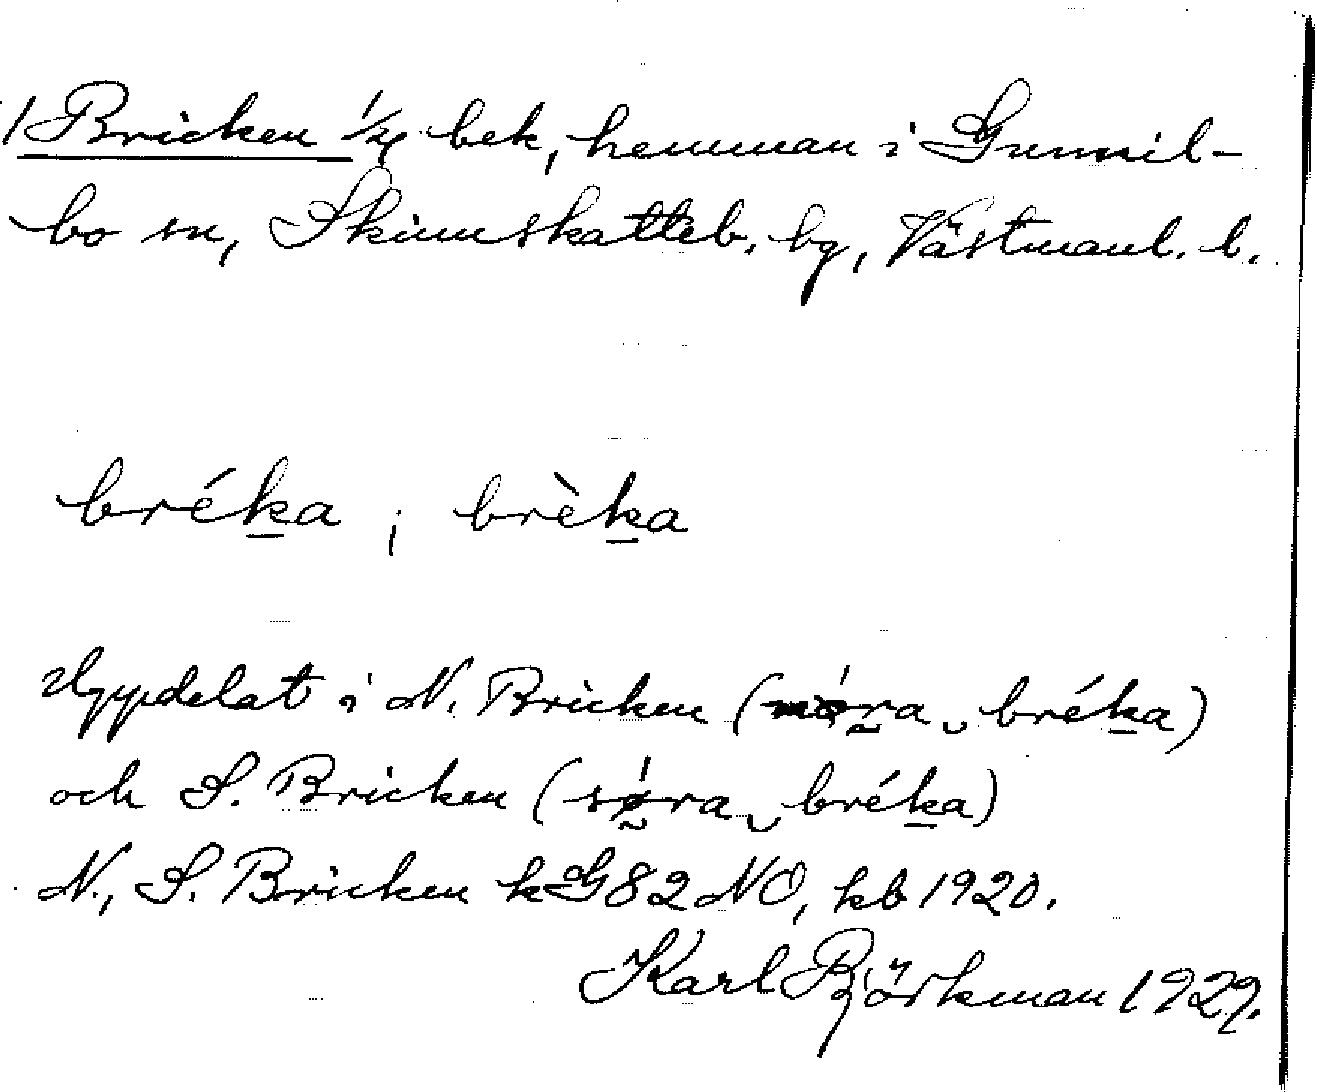 Bricken bek, hemman i Gunnil-
bo sn, Skinnskatteb. bg, Västmanl. l.
bréka ; brèka
Uppdelat i N. Bricken (nó̰ra‿bréka)
och S. Bricken (sǿ̰ra‿bréka)
N., S. Bricken k G 82 NO, kb 1920.
Karl Björkman 1929.